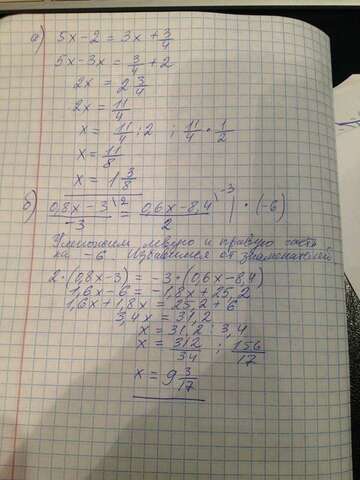 а) 5x - 2 = 3x + 3/4
5x - 3x = 3/4 + 2
2x = 2 3/4
2x = 11/4
x = 11/4 : 2 ; 11/4 · 1/2
x = 11/8
x = 1 3/8
б) (0,8x - 3)/(-3) \2 = (0,6x - 8,4)/2 \-3 | · (-6)
Умножим левую и правую часть
на -6. Избавимся от знаменателей
2·(0,8x-3) = -3·(0,6x-8,4)
1,6x - 6 = -1,8x + 25,2
1,6x + 1,8x = 25,2 + 6
3,4x = 31,2
x = 31,2 : 3,4
x = 312/34 ; 156/17
x = 9 3/17